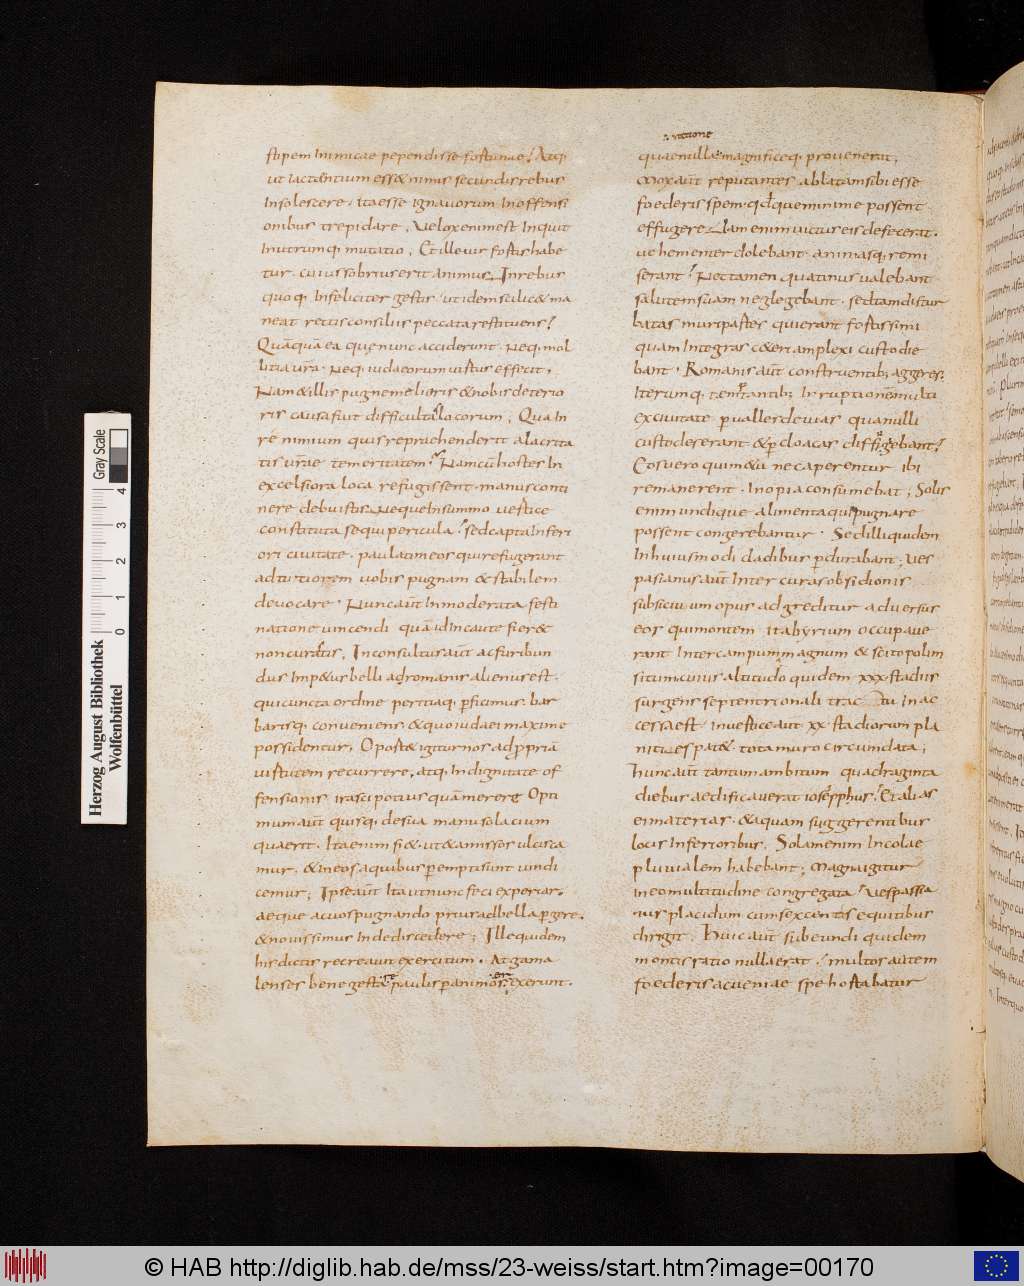 stipem inimicae pependisse fortunae; Atq;
ut iactantium esse& nimis secundis rebus
Insolescere. ita esse ignauorum In offensi
onibus trepidare. Velox enim est Inquit
Inutrumq; mutatio. Et ille uir fortis habe
tur. cuius sobrius erit animus. In rebus
quoq; Infeliciter gestis ut idem scilic& ma
neat rectis consiliis peccata restituens;
Quāquā ea que nunc acciderunt. Neq; mol
litia urā. Neq; iudaeorum uirtus effecit;
Nam & illis pugne melioris & nobis deterio
ris causa fuit difficultas locorum. Qua In
re nimium quis reprachenderit alacrita
tis urāe temeritatem; Nam cū hostes In
excelsiora loca refugissent. manus conti
nere debuistis. Neque In summo uertice
constituta sequi pericula; sed capta Inferi
ori ciuitate. paulatim eos qui refugerant
ad tutiorem uobis pugnam & stabilem
deuocare. Nunc aūt Inmoderata festi
natione uincendi quā id Incaute fier&
non curastis. Inconsultus aūt ac furibun
dus Imp&us belli ad romanis alienus est.
qui cuncta ordine peritiaq; perficimus. bar
barisq; conueniens & quo iudaei maxime
possidentur; Oport& igitur nos ad ppriā
uirtutem recurrere. atq; Indignitate of
fensionis irasci potius quā merere Opti
mum aūt quisq; de sua manu solacium
quaerit. Ita enim fi&. ut & amissos ulcisca
mur. & In eos a quibus perempti sunt uindi
cemur; Ipse aūt Ita ut nunc feci experiar.
aeque ac uos pugnando prius ad bella pergere.
& nouissimus Inde discedere; Ille quidem
his dictis recreauit exercitum. At gama
lenses bene gesta re paulisper animos erexerunt.
ratione
quae nulla magnificeq; prouenerat;
Mox aūt reputantes ablatam sibi esse
foederis spem. qdque minime possent
effugere Nam enim uictus eis defecerat.
uehementer dolebant. animasq; remi
serant; Nec tamen quatinus ualebant
salutem suam neglegebant. sed tam distur
batas muri partes quierant fortissimi
quam Integras c&eri amplexi custodie
bant. Romanis aūt construentib; aggeres.
Iterumq; temptantib; Irruptionem multi
ex ciuitate per ualles deuias qua nulli
custodes erant & per cloacas diffugiebant;
Cos uero qui m&u ne caperentur ibi
remanerent. Inopia consumebat; Solis
enim undique alimenta qui pugnare
possent congerebantur. Sed illi quidem
In huiusmodi cladibus perdurabant; Ves
pasianus aūt Inter curas obsidionis
subsiciuum opus adgreditur aduersus
eos qui montem itabyrium occupaue
rant Inter campum magnum & scitopolim
situm cuius altitudo quidem xxx stadiis
surgens septentrionali tractu Inac
cessa est. In uertice aūt xx stadiorum pla
nities pat& tota muro circumdata;
Hunc aūt tantum ambitum quadraginta
diebus aedificauerat iosephus; Et alias
ei materias. & aquam suggerentibus
locis Inferioribus. Solam enim Incolae
pluuialem habebant; Magna igitur
In eo multitudine congregata; Vespassia
nus placidum cum sexcentis equitibus
dirigit. Huic aūt subeundi quidem
montis ratio nulla erat; multos autem
foederis ac ueniae spe hortabatur
Herzog August Bibliothek
Wolfenbüttel
Gray Scale
0 1 2 3 4
© HAB http://diglib.hab.de/mss/23-weiss/start.htm?image=00170